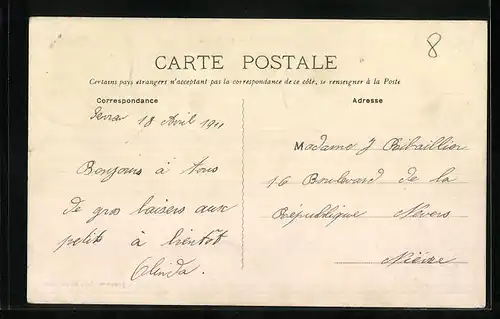 8
CARTE POSTALE
Certains pays étrangers n'acceptant pas la correspondance de ce côté, se renseigner à la Poste
Correspondance
18 Avril 1911
Bonjours à tous
de gros baisers aux
petits à bientôt
Clinda.
Adresse
Madame J Ribaillier
16 Boulevard de la
République Nevers
Nièvre